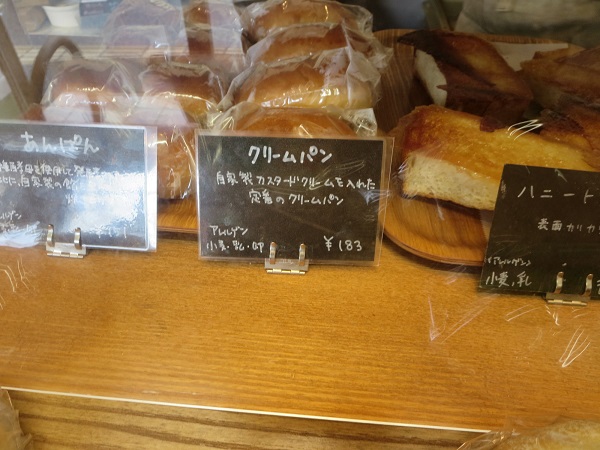 あんぱん
自家製の
アレルゲン
クリームパン
自家製カスタードクリームを入れた
定番のクリームパン
アレルゲン
小麦・乳・卵 ¥183
ハニート
表面カリカリ
(アレルゲン)
小麦、乳